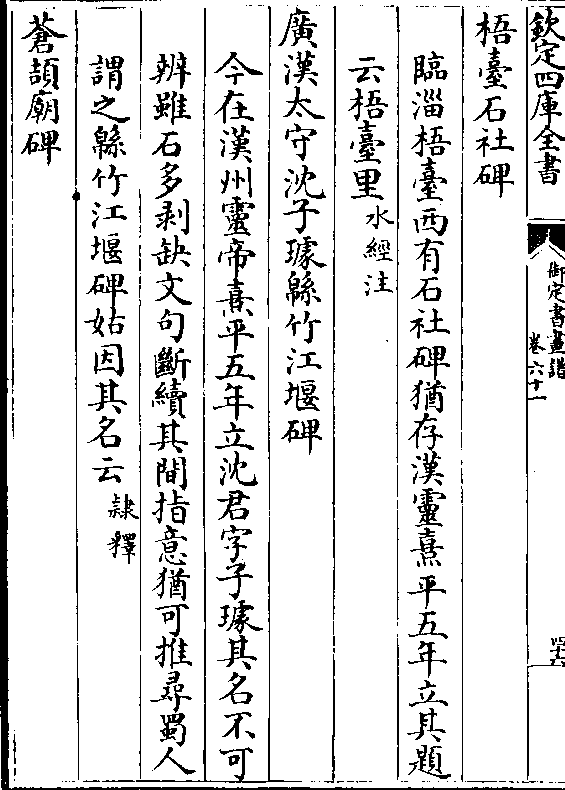 欽定四庫全書
御定書畫譜
卷六十一
梧臺石社碑
臨淄梧臺西有石社碑猶存漢靈熹平五年立其題
云梧臺里水經注
廣漢太守沈子璩緜竹江堰碑
今在漢州靈帝熹平五年立沈君字子璩其名不可
辨雖石多剥缺文句斷續其間指意猶可推尋蜀人
謂之緜竹江堰碑姑因其名云隸釋
蒼頡廟碑